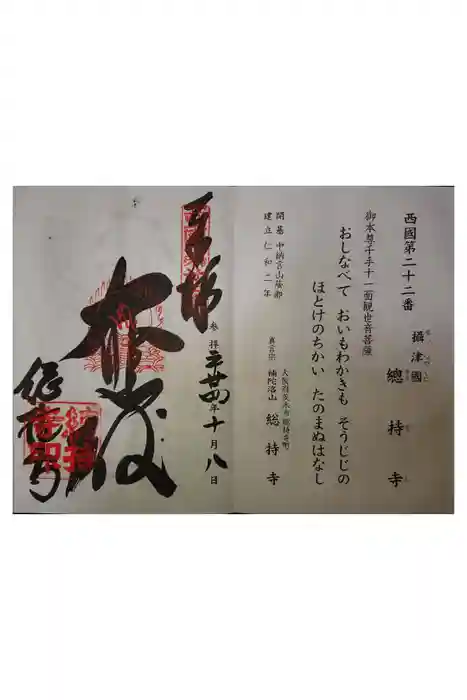 西國第二十二番
攝津國 總持寺
御本尊千手十一面観世音菩薩
おしなべて おいもわかきも そうじじの
ほとけのちかい たのまぬはなし
開基 中納言山蔭卿
建立 仁和二年
大阪府茨木市總持寺町
真言宗 補陀洛山 総持寺
奉拝
参拝 平成廿四年十月八日
大悲殿
総持寺